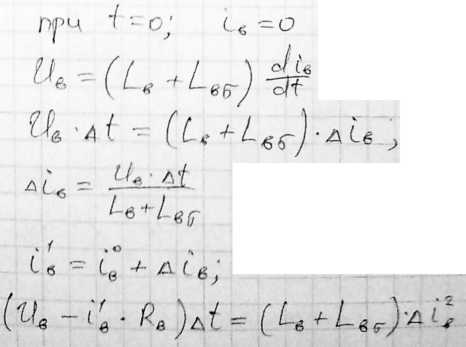 при t=0; iв=0
Uв = (Lв + LвБ) diв/dt
Uв · Δt = (Lв + LвБ) · Δiв;
Δiв = Uв · Δt / Lв + LвБ
i¹в = i⁰в + Δiв;
(Uв − i¹в · Rв)Δt = (Lв + LвБ) · Δi²в